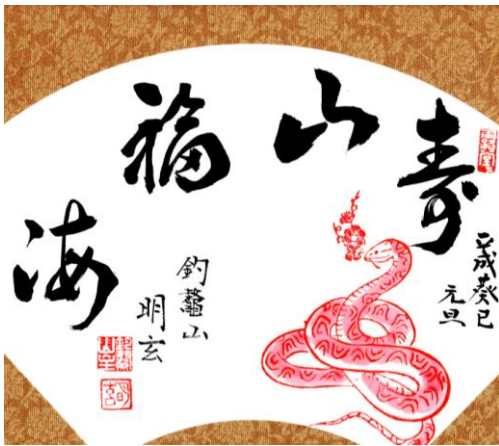 寿山福海
平成癸巳
元旦
釣鼇山
明玄